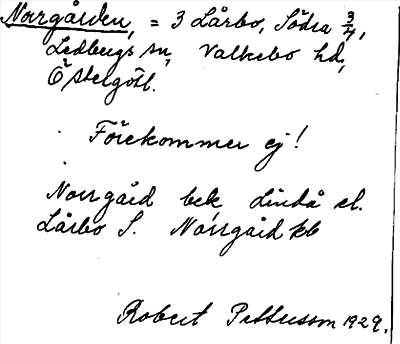 Norrgården, = 3 Lårbo, Södra 3/4,
Ledbergs sn, Valkebo hd,
Östergötl.
Förekommer ej!
Norrgård bek Lindå el.
Lårbo S. Norrgård kb
Robert Pettersson 1929.